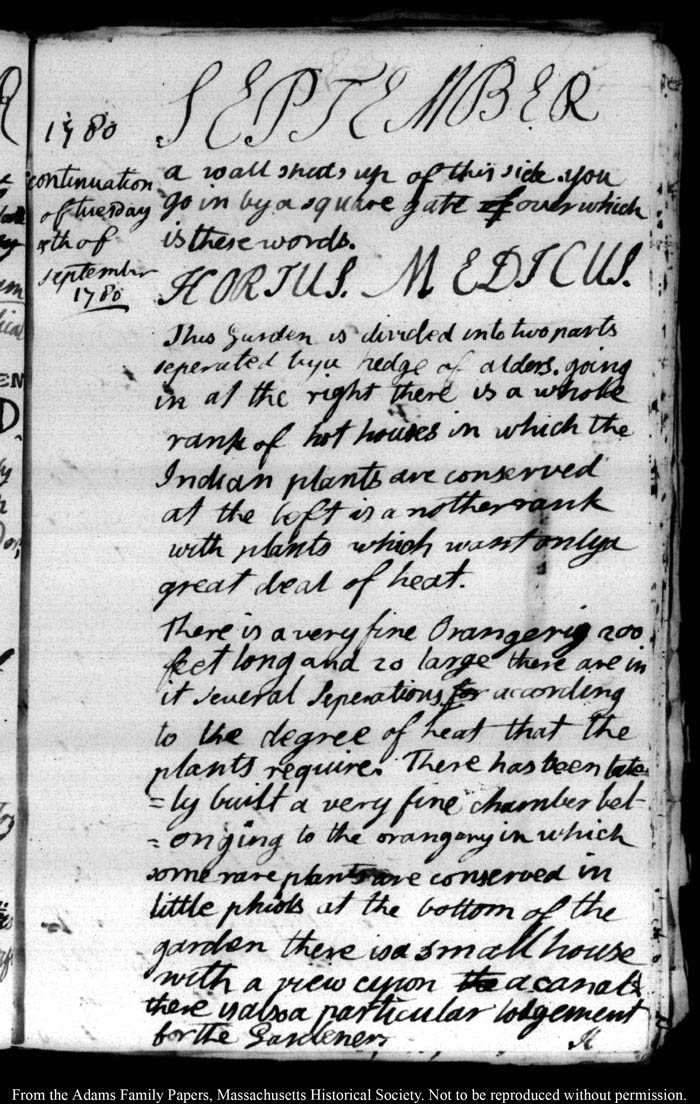 SEPTEMBER
1780
continuation
of tuesday
5th of
september
1780
a wall shuts up of this side. you
go in by a square gate of over which
is these words.
HORTUS. MEDICUS.
This Garden is divided into two parts
seperated by a hedge of alders. going
in at the right there is a whole
rank of hot houses in which the
Indian plants are conserved
at the left is a nother rank
with plants which want only a
great deal of heat.
There is a very fine Orangerig 200
feet long and 20 large there are in
it several Seperations for according
to the degree of heat that the
plants require. There has been late
= ly built a very fine chamber bel-
= onging to the orangery in which
some rare plants are conserved in
little phiols at the bottom of the
garden there is a small house
with a view cupon the a canal &
there is also a particular lodgement
for the Gardener.
It
From the Adams Family Papers, Massachusetts Historical Society. Not to be reproduced without permission.